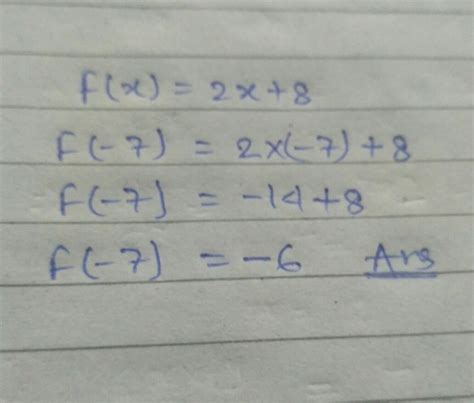 f(x) = 2x+8
f(-7) = 2x(-7)+8
f(-7) = -14+8
f(-7) = -6 Ans